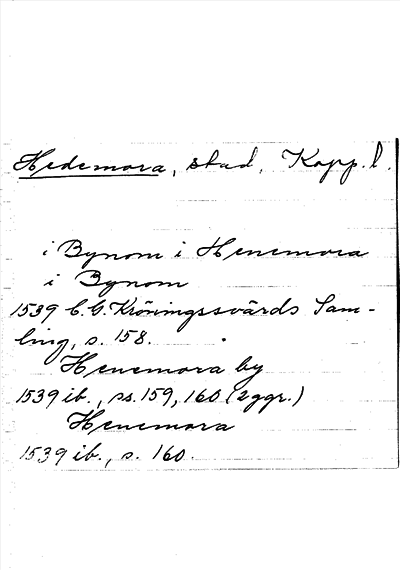 Hedemora, stad, Kopp. l.
i Bynom i Henemora
i Bynom
1539 C. G. Kröningssvärds Sam-
ling, s. 158.
Henemora by
1539 ib., ss. 159, 160 (2 ggr.)
Henemora
1539 ib., s. 160.